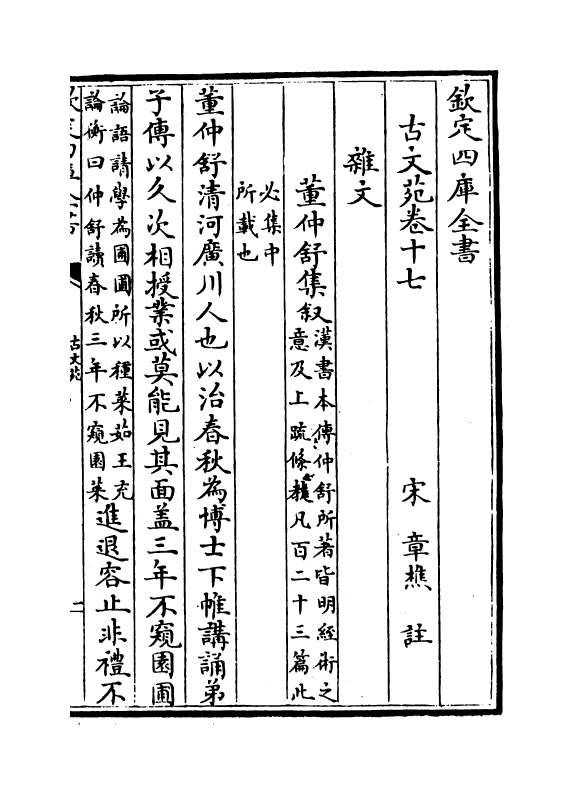 欽定四庫全書
古文苑卷十七
宋章樵註
雜文
董仲舒集叙漢書本傳仲舒所著皆明經術之
意及上疏條教凡百二十三篇此
必集中
所載也
董仲舒清河廣川人也以治春秋為博士下帷講誦弟
子傳以久次相授業或莫能見其面盖三年不窺園圃
論語請學為圃圃所以種菜茹王充
論衡曰仲舒讀春秋三年不窺園菜
進退容止非禮不
古文苑